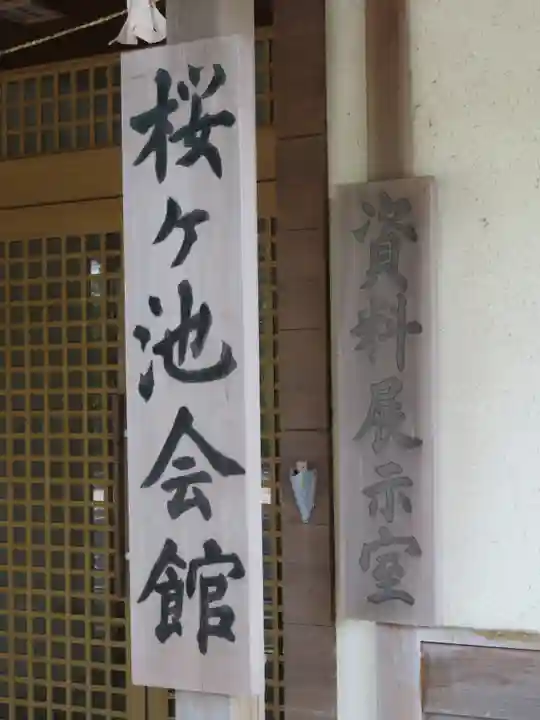 桜ヶ池会館
資料展示室